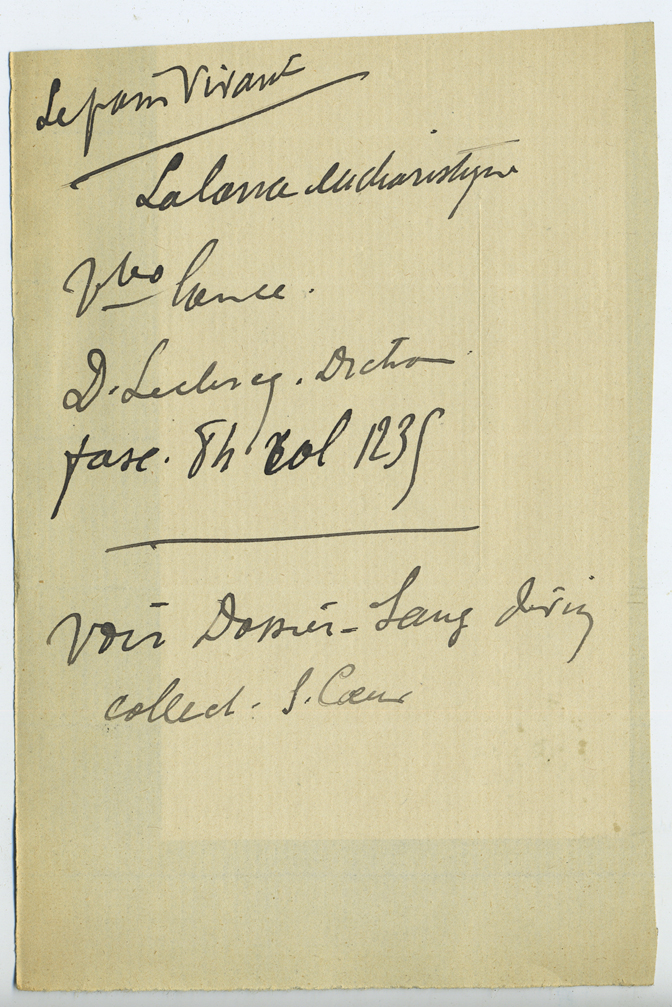 Le pain Vivant
La lance eucharistique
Vbo lance.
D. Leclercq. Diction
fasc. 84 col 1235
Voir Dossier - Sang divin
collect. S. Cœur